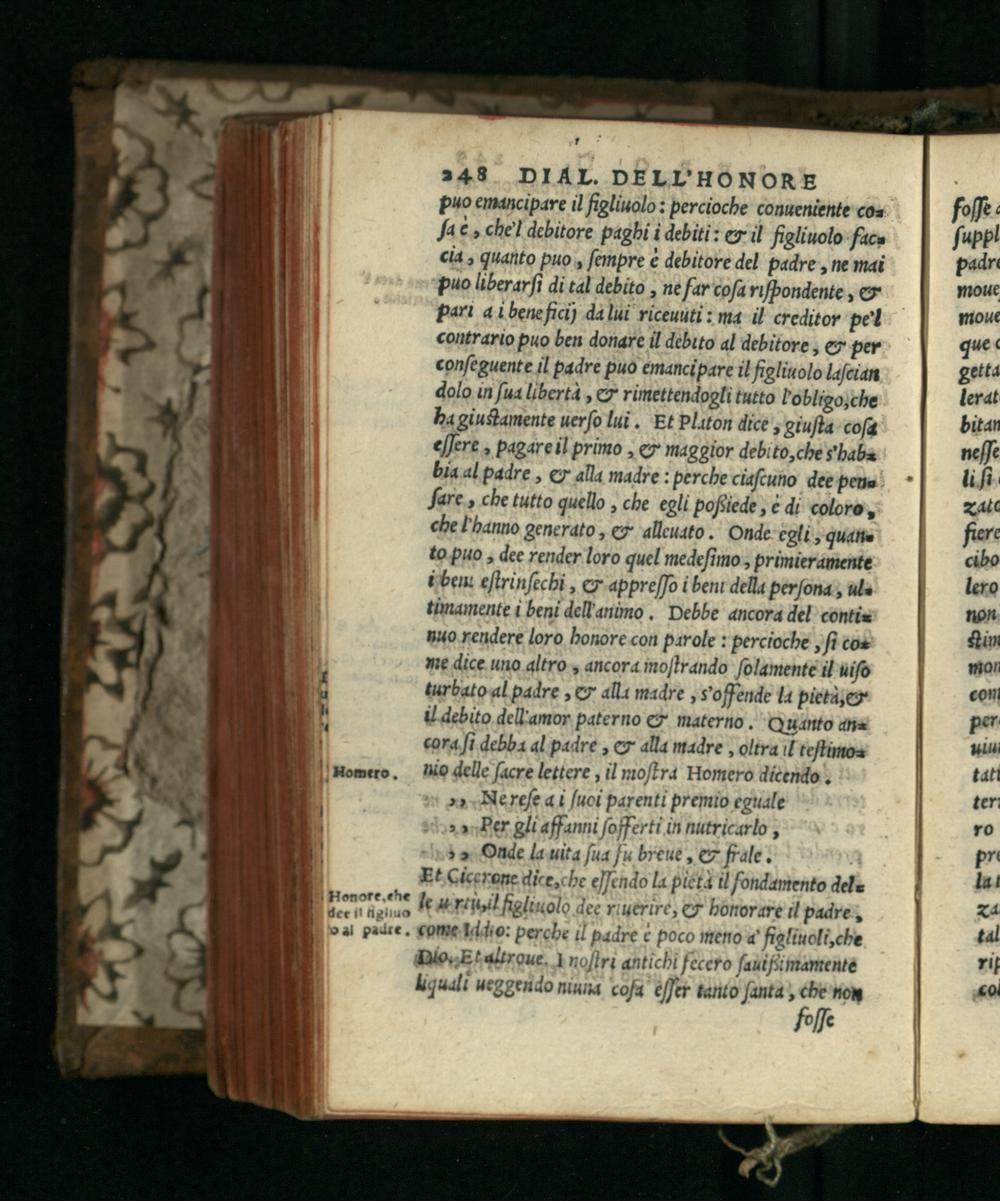 248 DIAL. DELL'HONORE
puo emancipare il figliuolo: percioche conueniente co=
ſa è, che'l debitore paghi i debiti: & il figliuolo fac=
cia, quanto puo, ſempre è debitore del padre, ne mai
puo liberarſi di tal debito, ne far coſa riſpondente, &
pari a i beneficij da lui riceuuti: ma il creditor pe'l
contrario puo ben donare il debito al debitore, & per
conſeguente il padre puo emancipare il figliuolo laſcian
dolo in ſua libertà, & rimettendogli tutto l'obligo, che
ha giuſtamente uerſo lui. Et Platon dice, giuſta coſa
eſſere, pagare il primo, & maggior debito, che s'hab=
bia al padre, & alla madre: perche ciaſcuno dee pen=
ſare, che tutto quello, che egli poßiede, è di coloro,
che l'hanno generato, & alleuato. Onde egli, quan=
to puo, dee render loro quel medeſimo, primieramente
i beni eſtrinſechi, & appreſſo i beni della perſona, ul=
timamente i beni dell'animo. Debbe ancora del conti=
nuo rendere loro honore con parole: percioche, ſi co=
me dice uno altro, ancora moſtrando ſolamente il uiſo
turbato al padre, & alla madre, s'offende la pietà, &
il debito dell'amor paterno & materno. Quanto an=
cora ſi debba al padre, & alla madre, oltra il teſtimo=
Homero.
nio delle ſacre lettere, il moſtra Homero dicendo.
,, Ne reſe a i ſuoi parenti premio eguale
,, Per gli affanni ſofferti in nutricarlo,
,, Onde la uita ſua fu breue, & frale.
Et Cicerone dice, che eſſendo la pietà il fondamento del=
Honore, che
dee il figliuo
o al padre.
le uirtù, il figliuolo dee riuerire, & honorare il padre,
come Iddio: perche il padre è poco meno a' figliuoli, che
Dio. Et altroue. I noſtri antichi fecero ſauißimamente
liquali ueggendo niuna coſa eſſer tanto ſanta, che non
foſſe
foſſe
ſuppl
padre
moue
moue
que
getta
lerat
bitan
neſſe
li ſi
zato
fiere
cibo
lero
non
ſtim
mon
com
per
uiu
tatt
ter
ro
pre
la
za
tal
rip
col